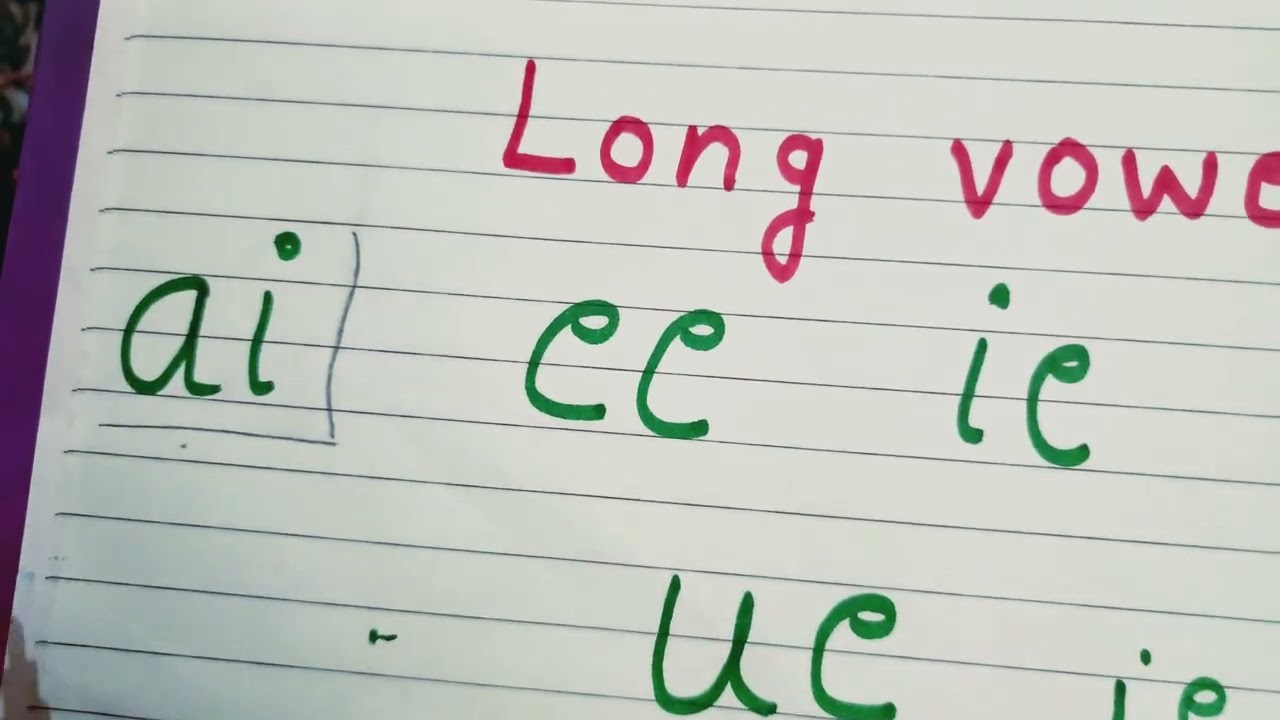 Long vowe
ai ee ie
ue ie